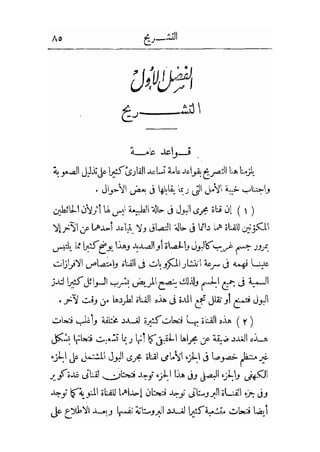 التشـــريح ٨٥
الفصل الأول
التشـــــريح
قـــواعد عامـــة
يلزمنا هنا التصريح بقواعد عامة تساعد القارئ كثيرا على تذليل الصعوبة
واجتناب خيبة الأمل التى ربما يقابلها فى بعض الأحوال .
( ١ ) إن قناة مجرى البول فى حالة الطبيعة ليس لها أثر لأن الحائطين
المكونين للقناة هما دائما فى حالة التصاق ولا يتباعد أحدهما عن الآخر إلا
بمرور جسم غريب كالبول والحصاة أو الصديد وهذا يوضح كثيرا مما يلتبس
علينا فهمه فى سرعة انتشار المكروبات فى القناة وامتصاص الافرازات
السمية فى جميع الجسم ولذلك ينصح المريض بشرب السوائل كثيرا لتدر
البول فتمنع أو تقلل تجمع المدة فى هذه القناة لطردها من وقت لآخر .
( ٢ ) هذه القناة بها فتحات كثيرة لغدد مختلفة وأغلب فتحات
هذه الغدد ضيقة عن مجراها الحقيقى كما أنها ربما تشعبت فتحاتها بشكل
غير منتظم خصوصا فى الجزء الأمامى لقناة مجرى البول المشتمل على الجزء
الكهفى والجزء البصلى وفى هذا الجزء توجد فتحتان لقناتى غدة كوبر
وفى جزء القناة البروستاتى توجد فتحتان إحداهما للقناة المنوية كما توجد
أيضا فتحات متشعبة كثيرا لغدد البروستاتة نفسها وبعد الاطلاع على